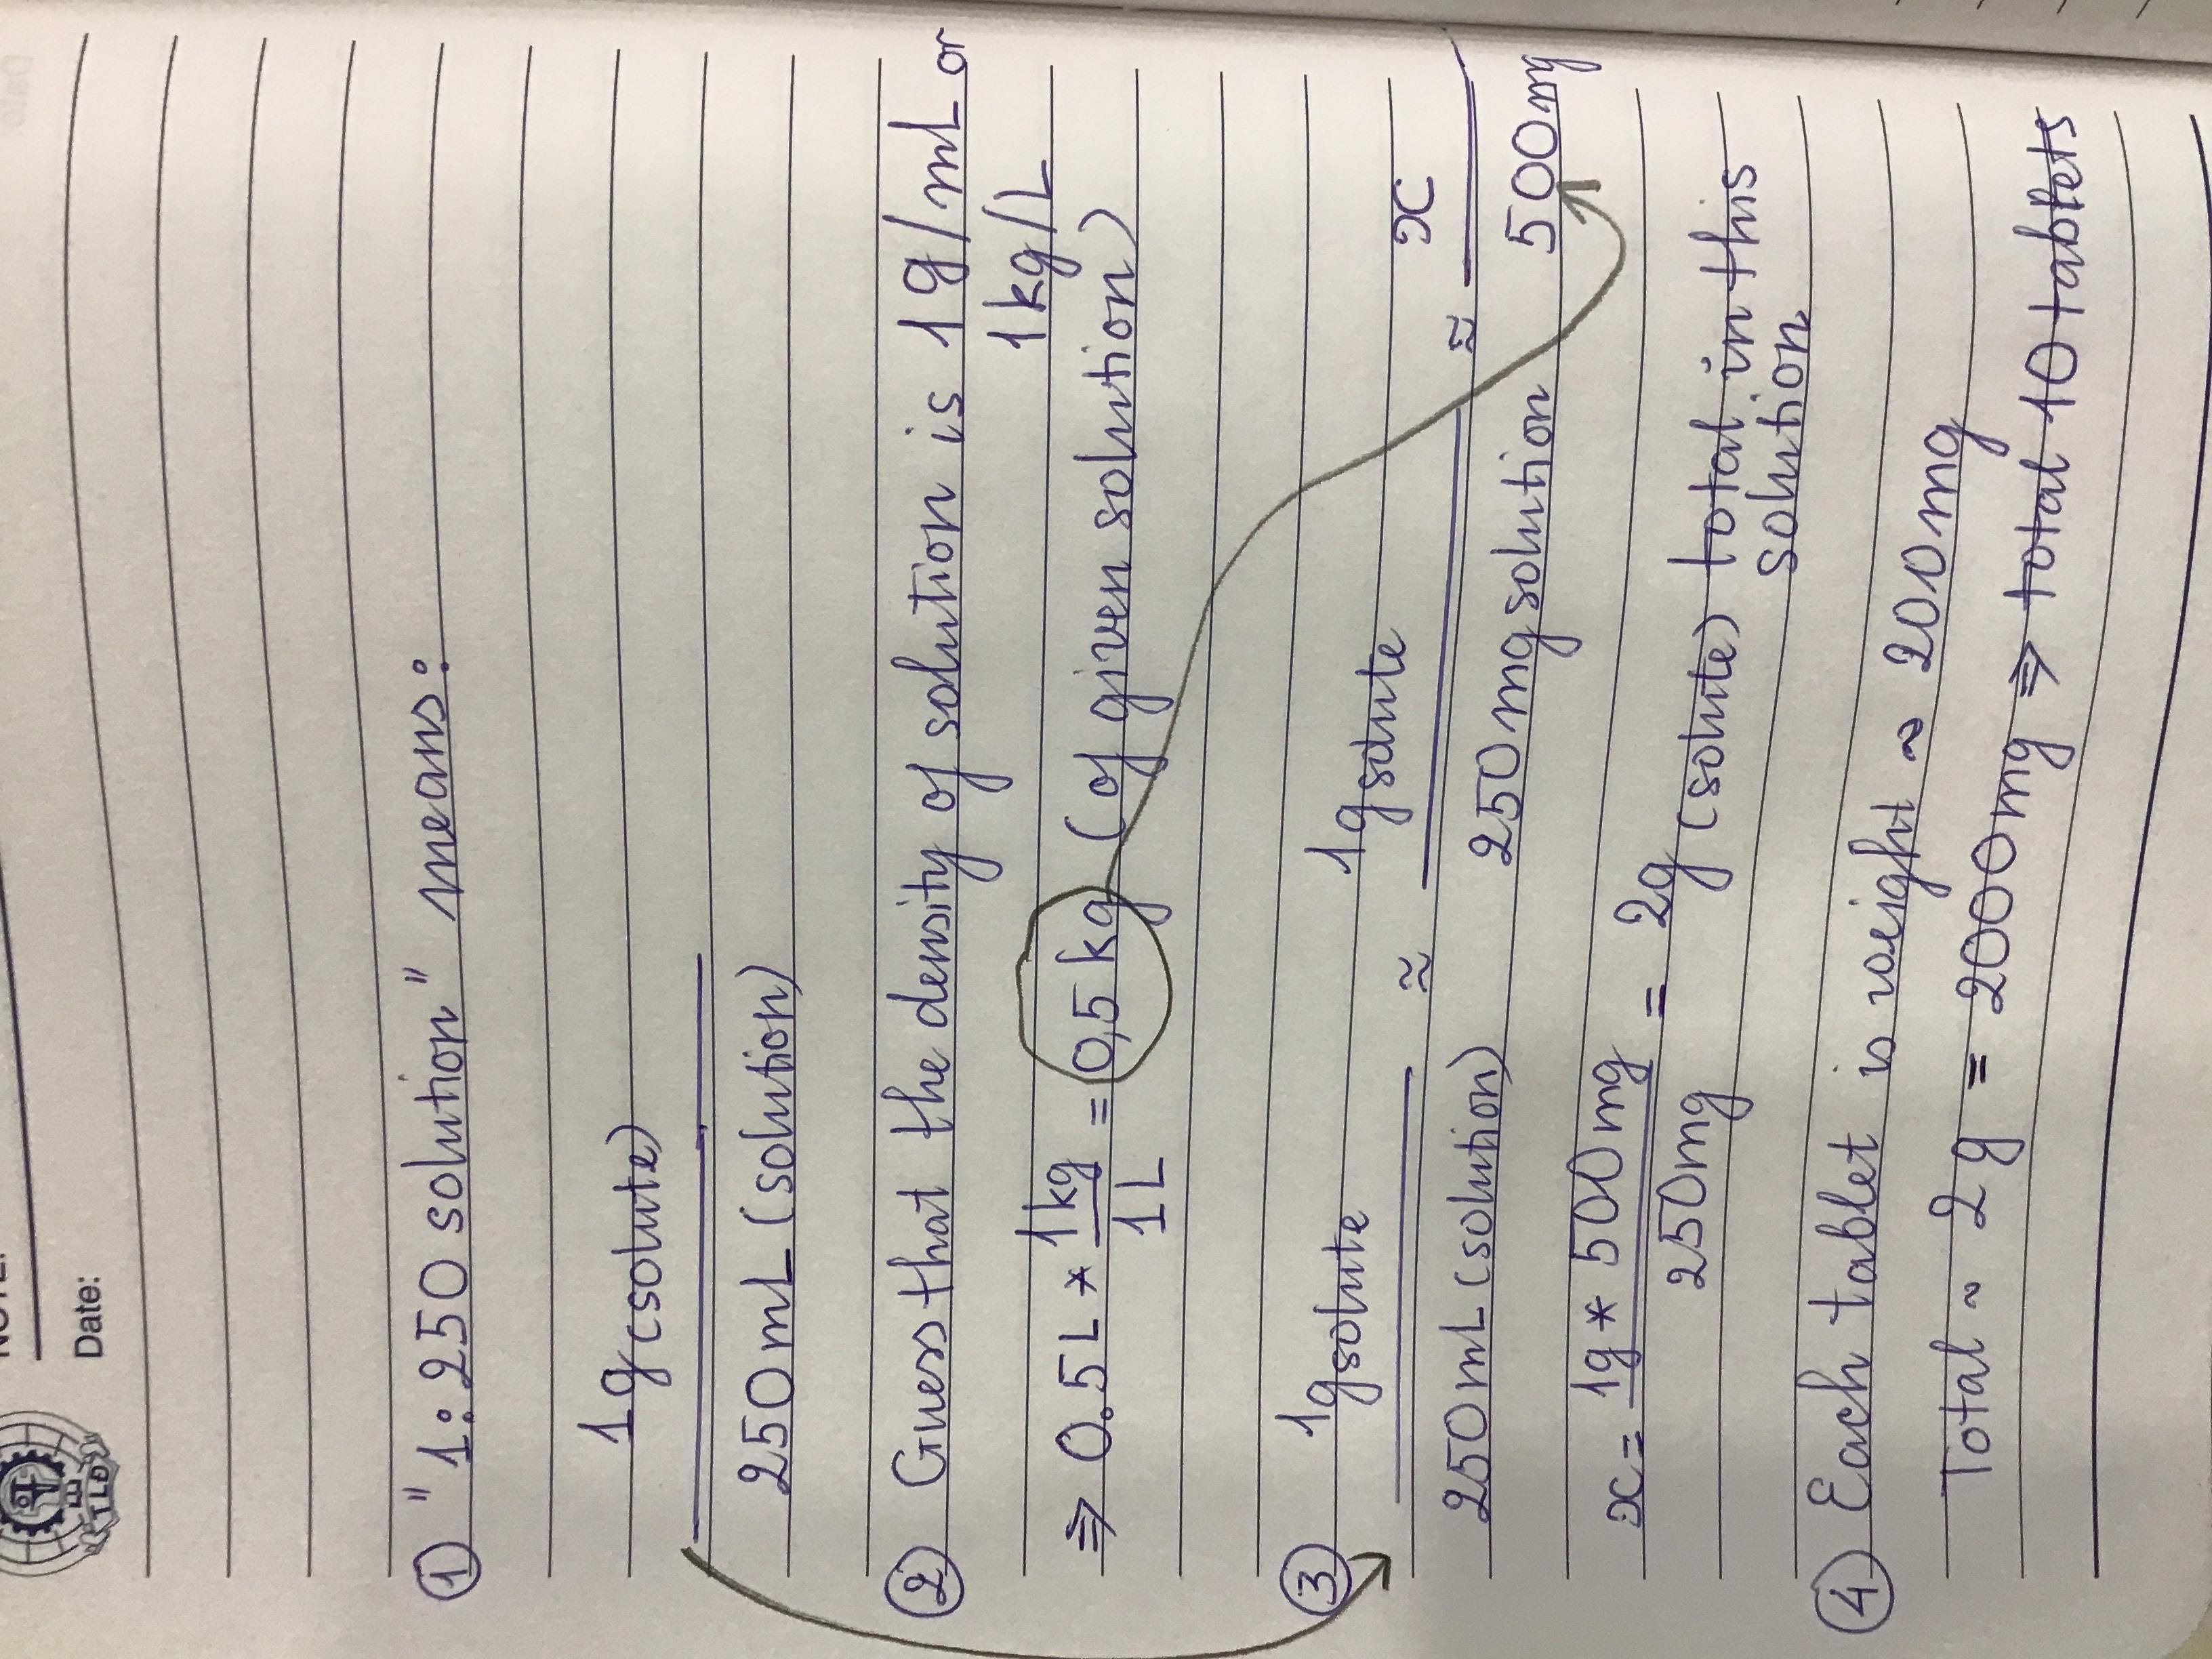 Date:
TLĐ
① "1:250 solution" means:
1g (solute)
250mL (solution)
② Guess that the density of solution is 1g/mL or
1kg/L
⇒ 0.5L * 1kg / 1L = 0,5 kg (of given solution)
③ 1g solute / 250mL (solution) ≈ 1g solute / 250mg solution ≈ x / 500mg
x = 1g * 500mg / 250mg = 2g (solute) total in this
solution
④ Each tablet is weight ~ 200mg
Total ~ 2g = 2000mg ⇒ total 10 tablets